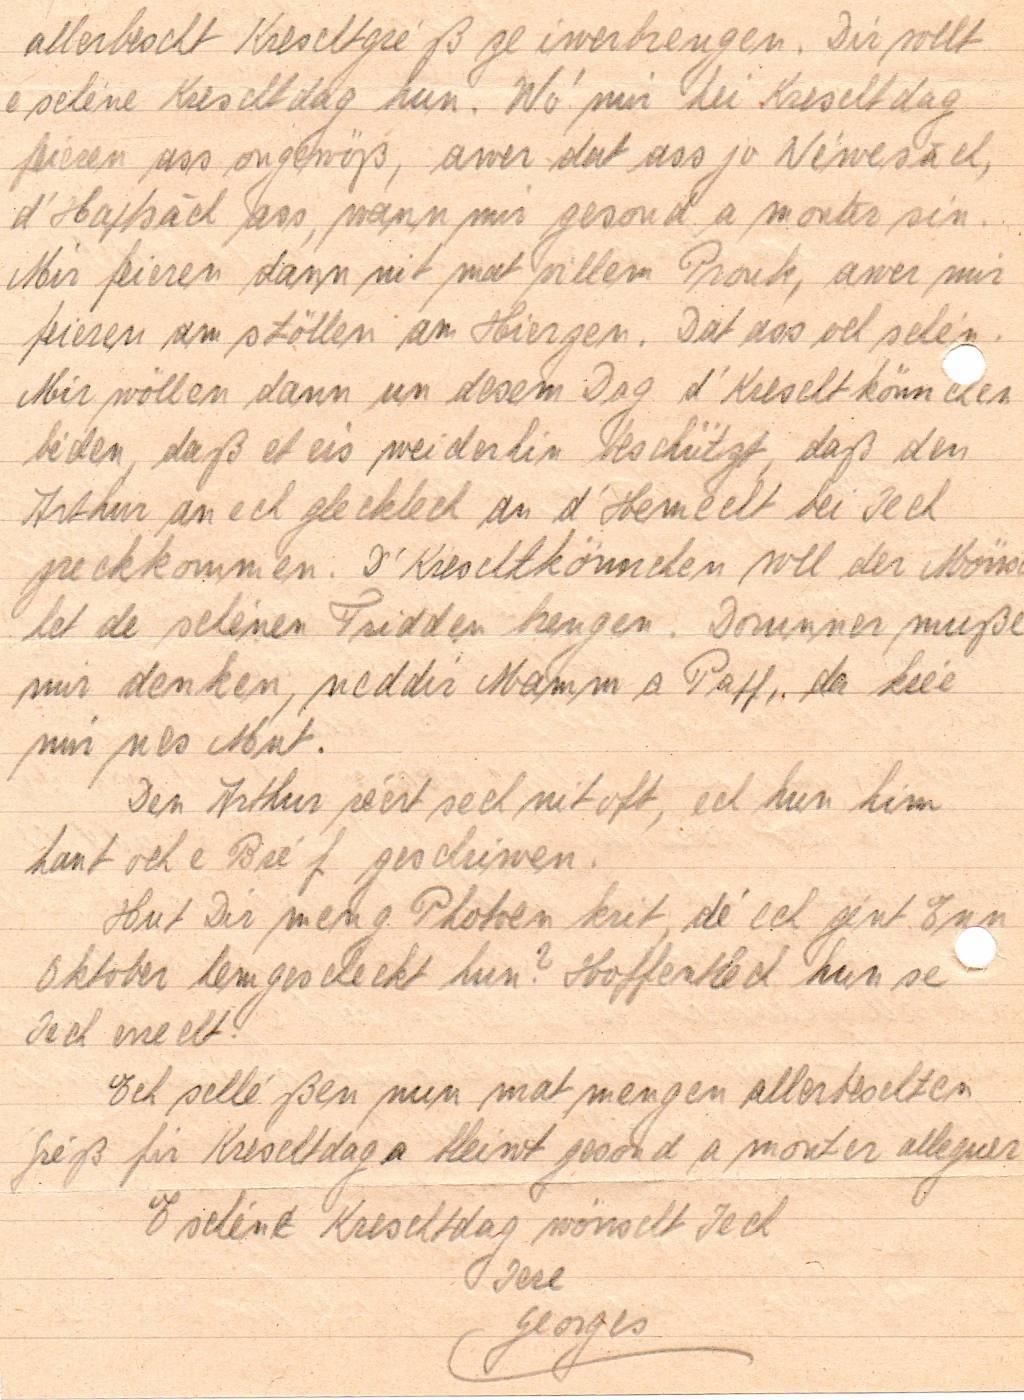 allerbescht Kreschtgréß ze iwerbrengen. Dir sollt
e schéne Kreschtdag hun. Wó mir hei Kreschtdag
feieren ass ongewöß, awer dat ass jo Néwesach,
d'Haptsäch ass, wann mir gesond a monter sin.
Mir feieren dann nit mat villem Pronk, awer mir
feieren am stöllen am Hierzen. Dat ass och schén.
Mir wöllen dann un desem Dag d'Kreschtkönnchen
bieden, daß et eis weiderhin beschützt, daß den
Arthur an ech glecklech an d'Hemecht bei Iech
zreckkommen. D'Kreschtkönnchen soll der Mönsch
het de schénen Fridden brengen. Dorunner muße
mir denken, neddir Mamm a Papp, da krée
mir nes Mut.
Den Arthur réert sech nit oft, ech hun him
haut och e Bréf geschriwen.
Hut Dir meng Photoen krit, dé ech gént Enn
Oktober hemgescheckt hun? Hoffentlech hun se
Iech erreecht.
Ech schléßen nun mat mengen allerbeschten
Gréß fir Kreschtdag a bleiwt gesond a monter alleguer
E schéne Kreschtdag wönscht Iech
Iere
Georges